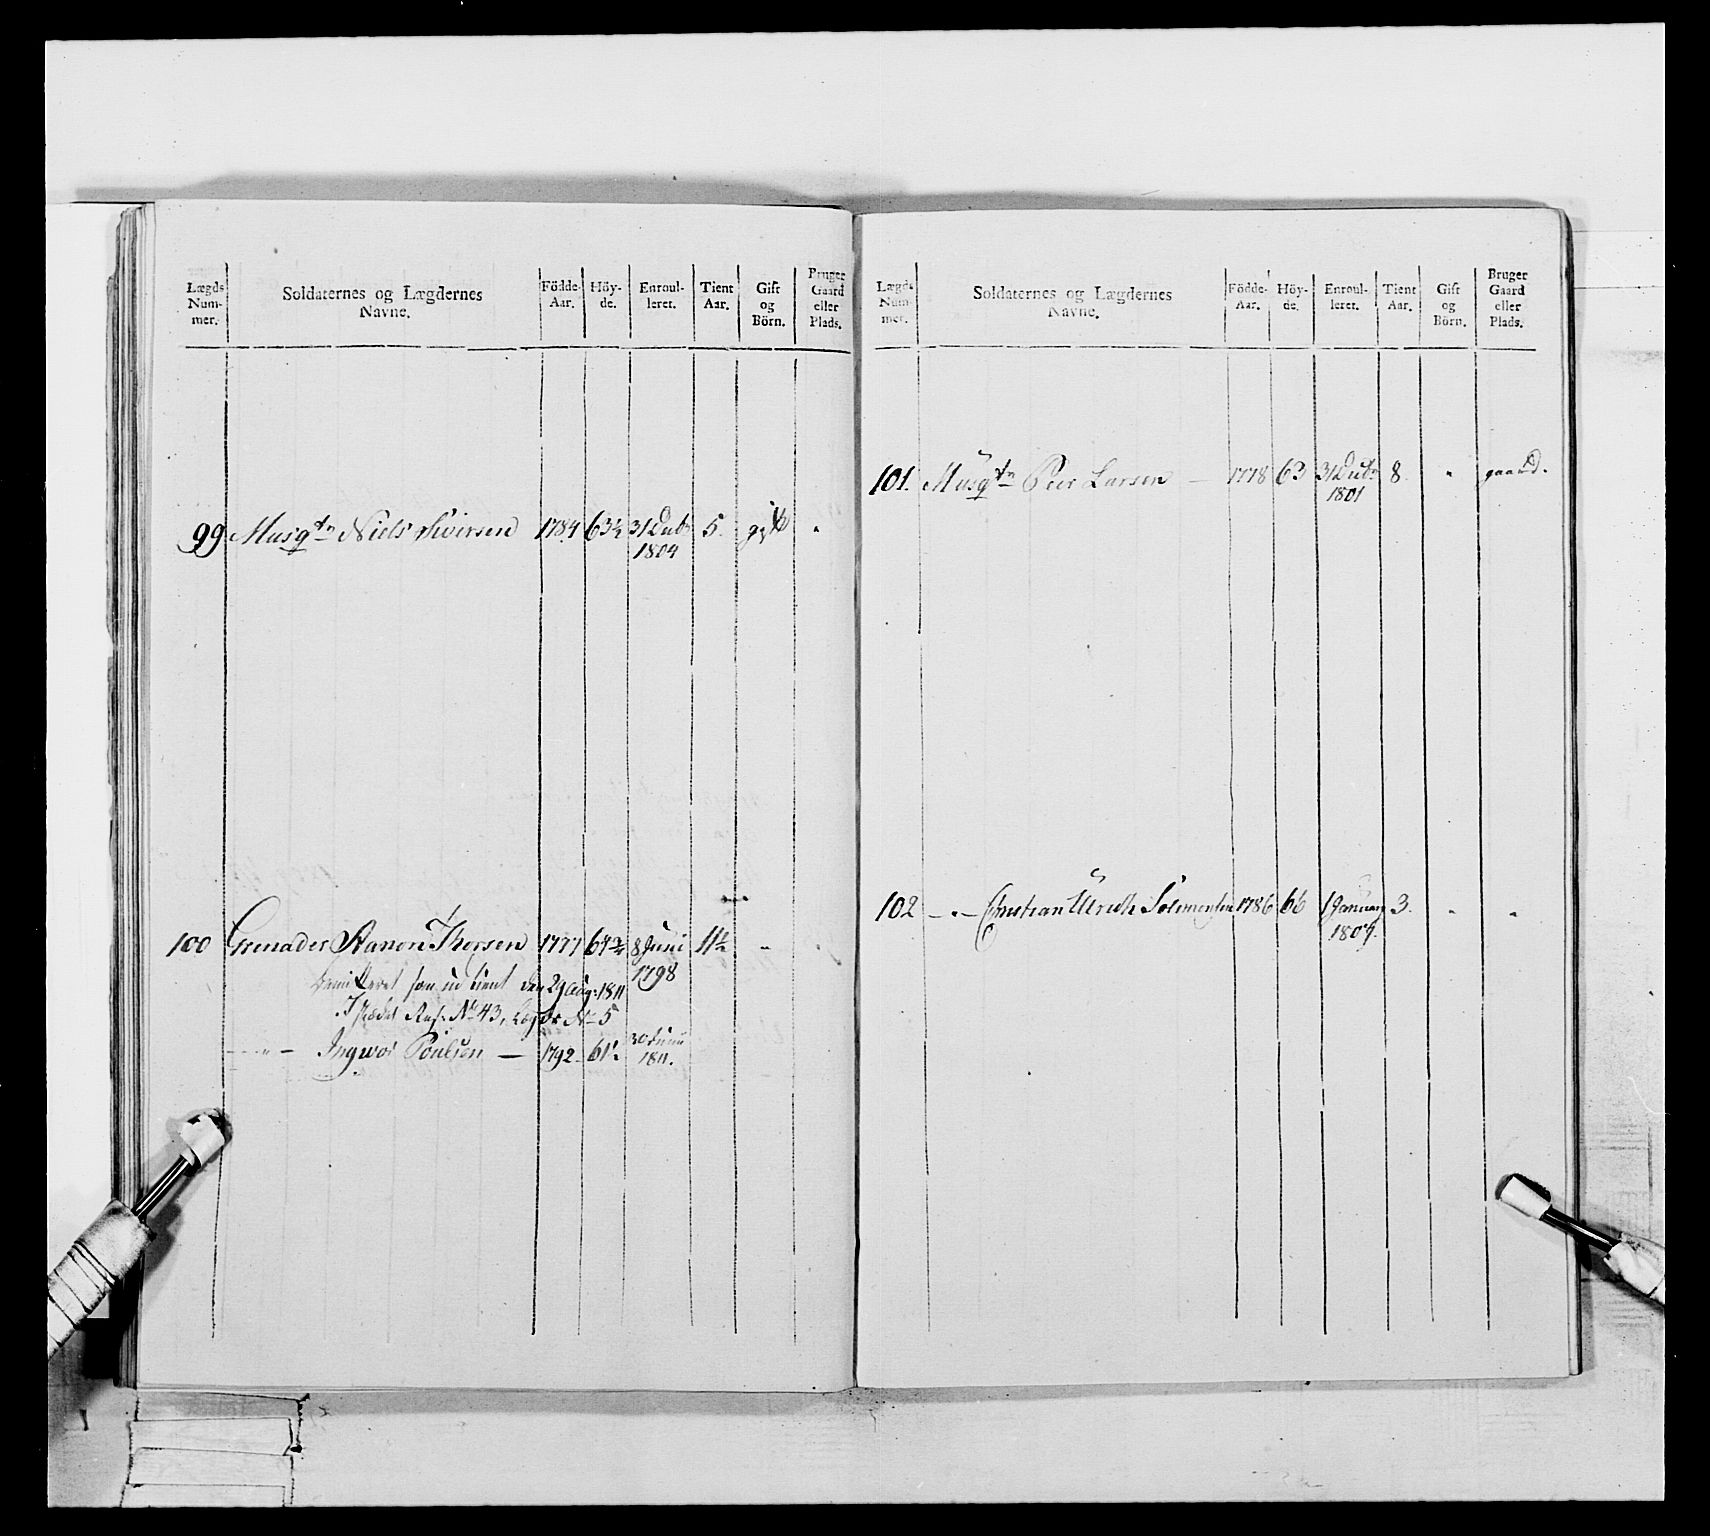 Lægds Num- mer.
Soldaternes og Lægdernes Navne.
Födde- Aar.
Höy- de.
Enroul- leret.
Tient Aar.
Gift og Börn.
Bruger Gaard eller Plads.
99 Musqtr Niels Sivirsen 1784 63½ 31 Decbr 5. gift "
1804
100 Grenader Aanon Thorsen 1777 64¾ 8 Juni 11½ "
1798
Demitteret som ud tient den 29 Aug: 1811
I stædet Res: No 43, Lægds No 5
- - " - Ingwor Poulsen — 1792 61½ 30 Juni
1811.
Lægds Num- mer.
Soldaternes og Lægdernes Navne.
Födde- Aar.
Höy- de.
Enroul- leret.
Tient Aar.
Gift og Börn.
Bruger Gaard eller Plads.
101. Musqtr Peer Larsen — 1778 63 31 Decbr 8. " gaard.
1801
102 - " - Christian Ulrich Solomonsen 1786 66 1 January 3. " "
1807.